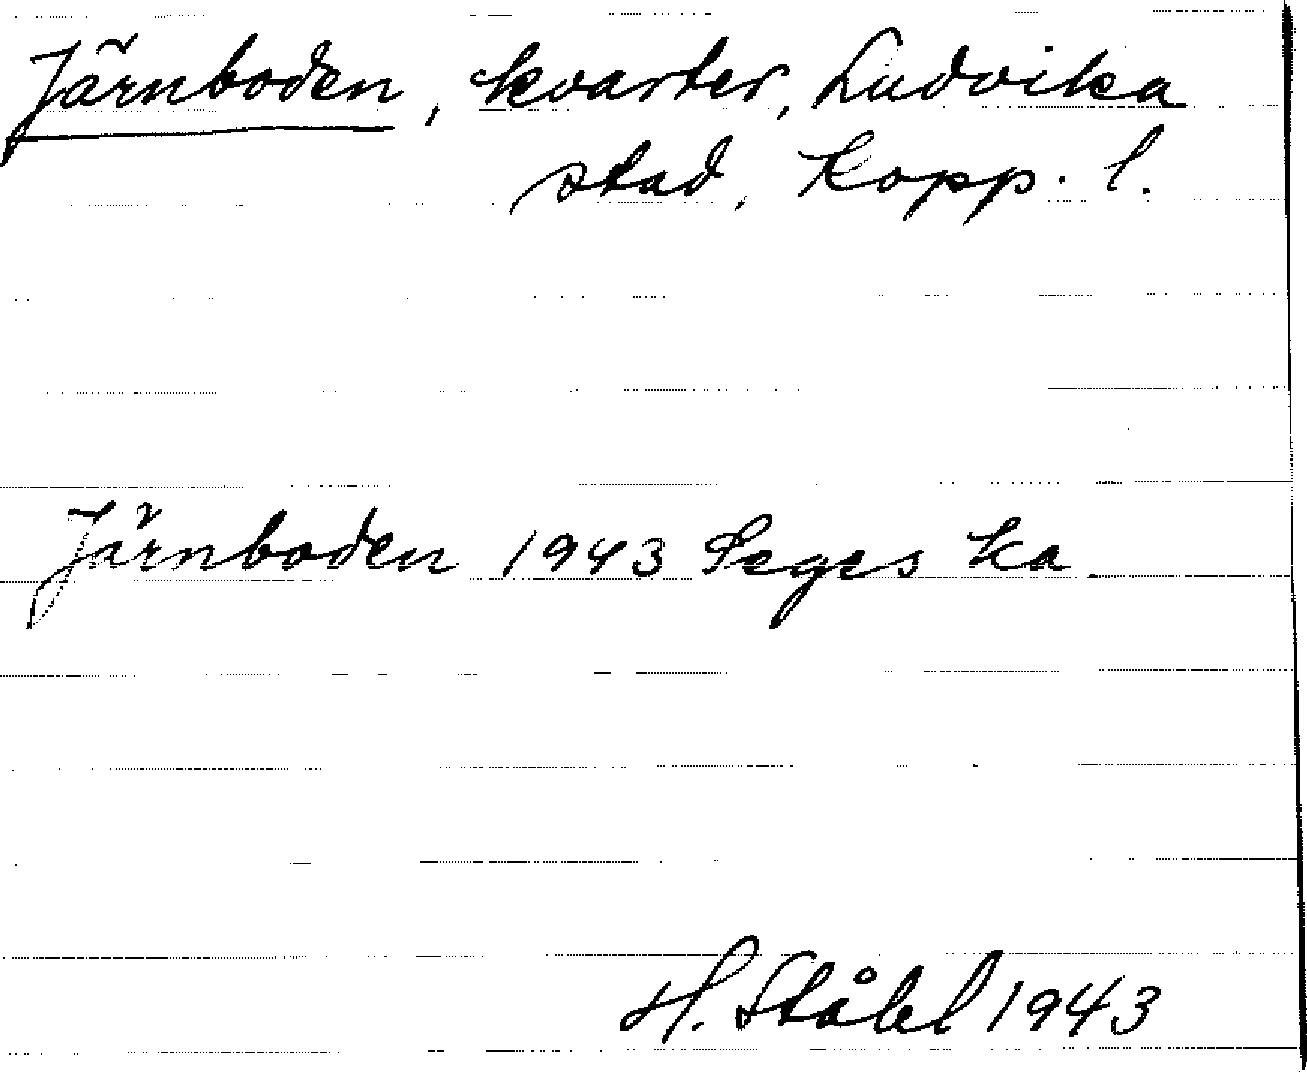 Järnboden, kvarter, Ludvika
stad, Kopp. l.
Järnboden 1943 Seges ka
H. Ståhl 1943